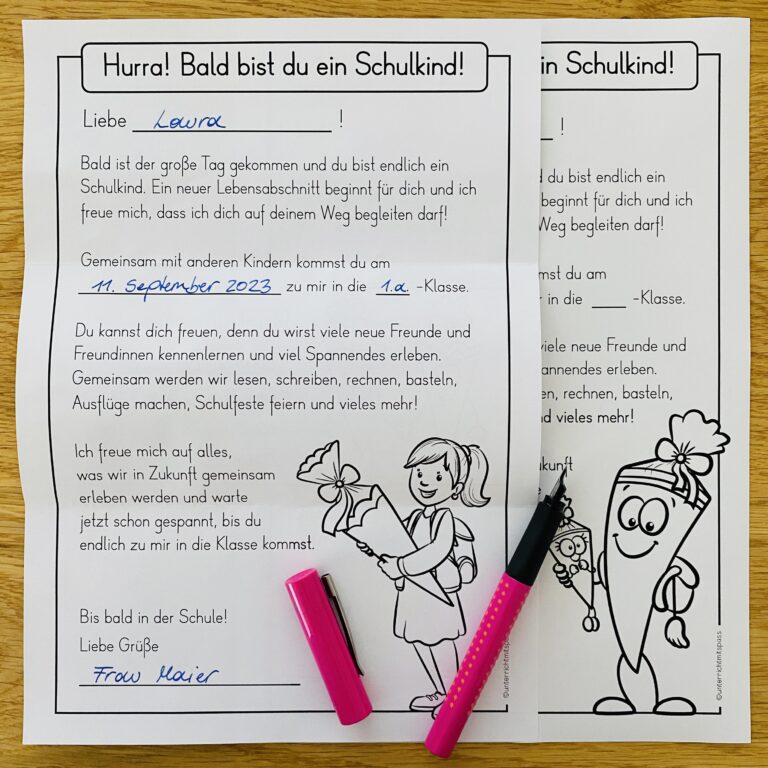 Hurra! Bald bist du ein Schulkind!
Liebe Laura !
Bald ist der große Tag gekommen und du bist endlich ein
Schulkind. Ein neuer Lebensabschnitt beginnt für dich und ich
freue mich, dass ich dich auf deinem Weg begleiten darf!
Gemeinsam mit anderen Kindern kommst du am
11. September 2023 zu mir in die 1.a. -Klasse.
Du kannst dich freuen, denn du wirst viele neue Freunde und
Freundinnen kennenlernen und viel Spannendes erleben.
Gemeinsam werden wir lesen, schreiben, rechnen, basteln,
Ausflüge machen, Schulfeste feiern und vieles mehr!
Ich freue mich auf alles,
was wir in Zukunft gemeinsam
erleben werden und warte
jetzt schon gespannt, bis du
endlich zu mir in die Klasse kommst.
Bis bald in der Schule!
Liebe Grüße
Frau Maier
©unterrichtmitspass
in Schulkind!
!
d du bist endlich ein
beginnt für dich und ich
Weg begleiten darf!
mst du am
r in die -Klasse.
viele neue Freunde und
annendes erleben.
en, rechnen, basteln,
d vieles mehr!
ukunft
e
©unterrichtmitspass